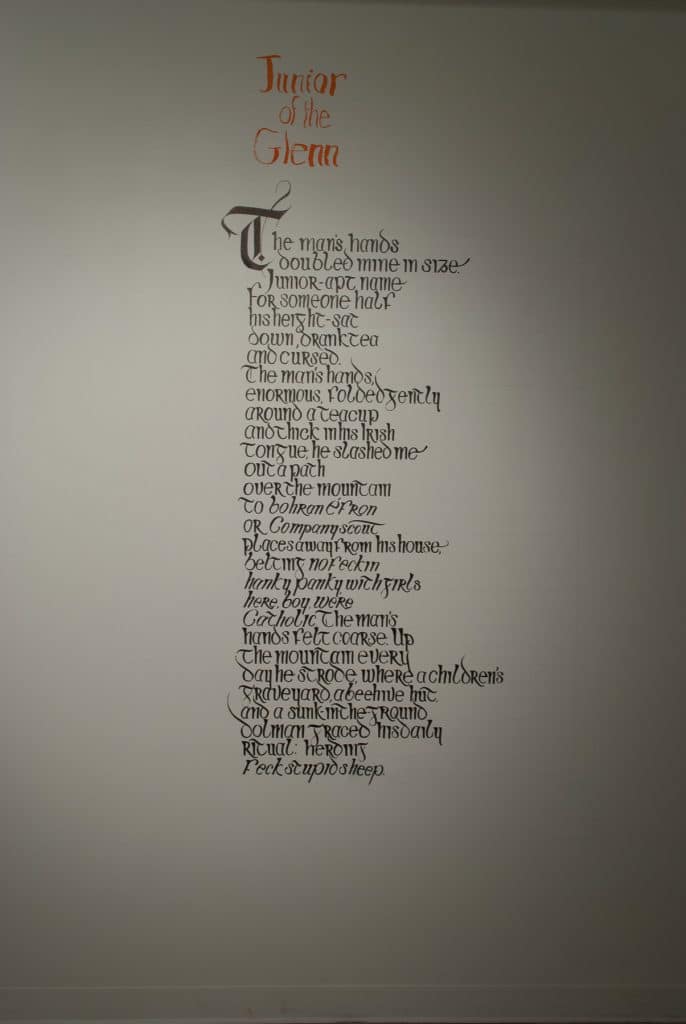 Junior
of the
Glenn
The man's hands
doubled mine in size.
Junior-apt name
for someone half
his height-sat
down, drank tea
and cursed.
The man's hands,
enormous, folded gently
around a teacup
and thick in his Irish
tongue, he slashed me
out a path
over the mountain
to bohron
or Company scout
places away from his house,
belting no feckin
hanky panky with girls
here, boy, we're
Catholic The man's
hands felt coarse. Up
the mountain every
day he strode, where a children's
graveyard, a beehive hut,
and a sunk in the ground
dolman graced his daily
ritual: herding
feck stupid sheep.